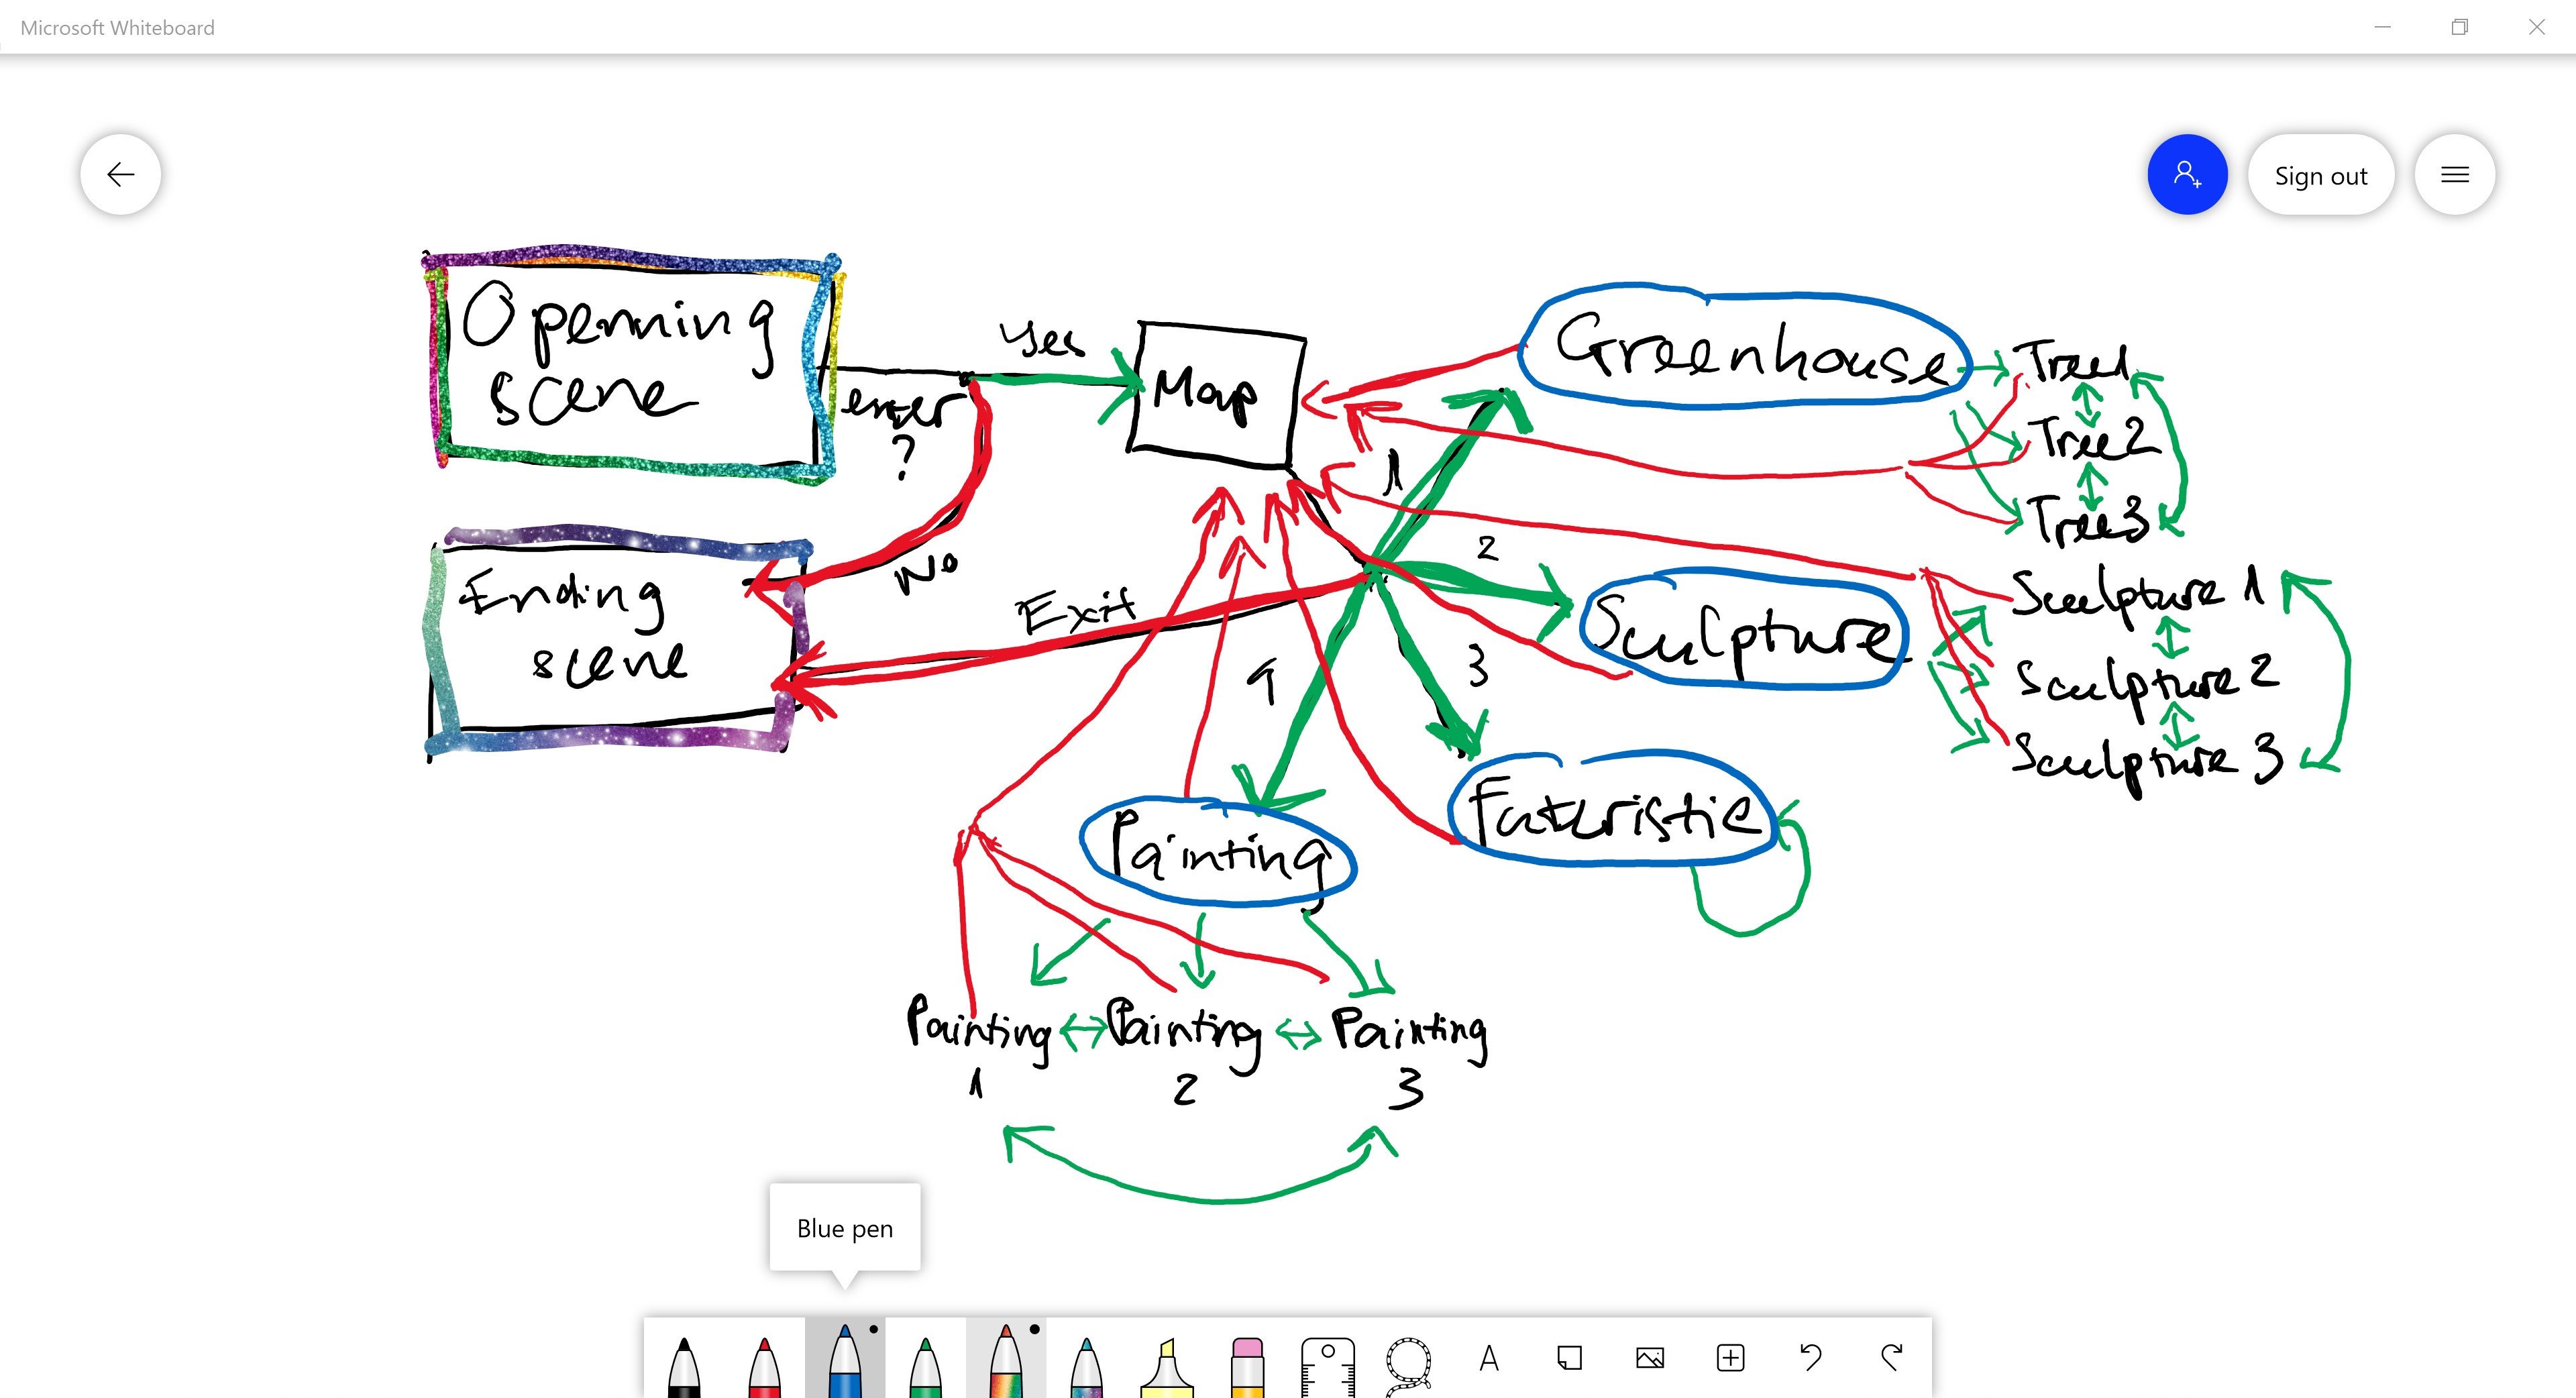 Microsoft Whiteboard
Sign out
Openning
scene
enter
?
Yes
No
Map
Ending
scene
Exit
1
2
3
4
Greenhouse
Tree1
Tree2
Tree3
Sculpture
Sculpture 1
Sculpture 2
Sculpture 3
Futuristic
Painting
Painting
1
Painting
2
Painting
3
Blue pen
A